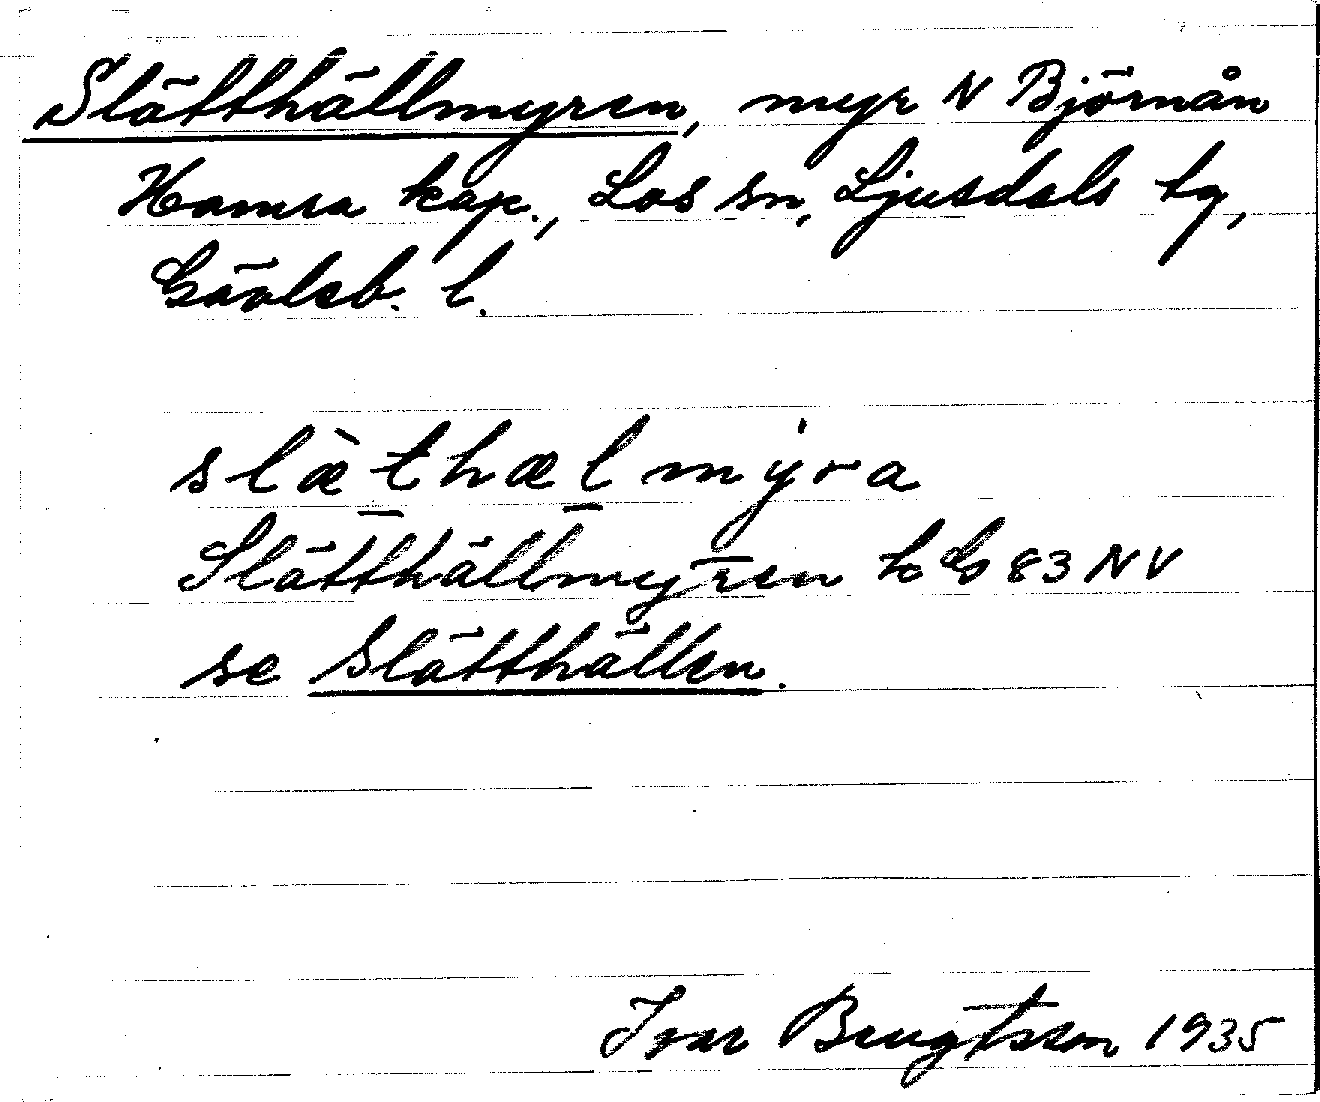 Slätthällmyren, myr N Björnån
Hamra kap., Los sn, Ljusdals tg,
Gävleb. l.
slæ̀thælmýra
Slätthällmyren k G 83 NV
se Slätthällen.
Ivar Bengtsson 1935